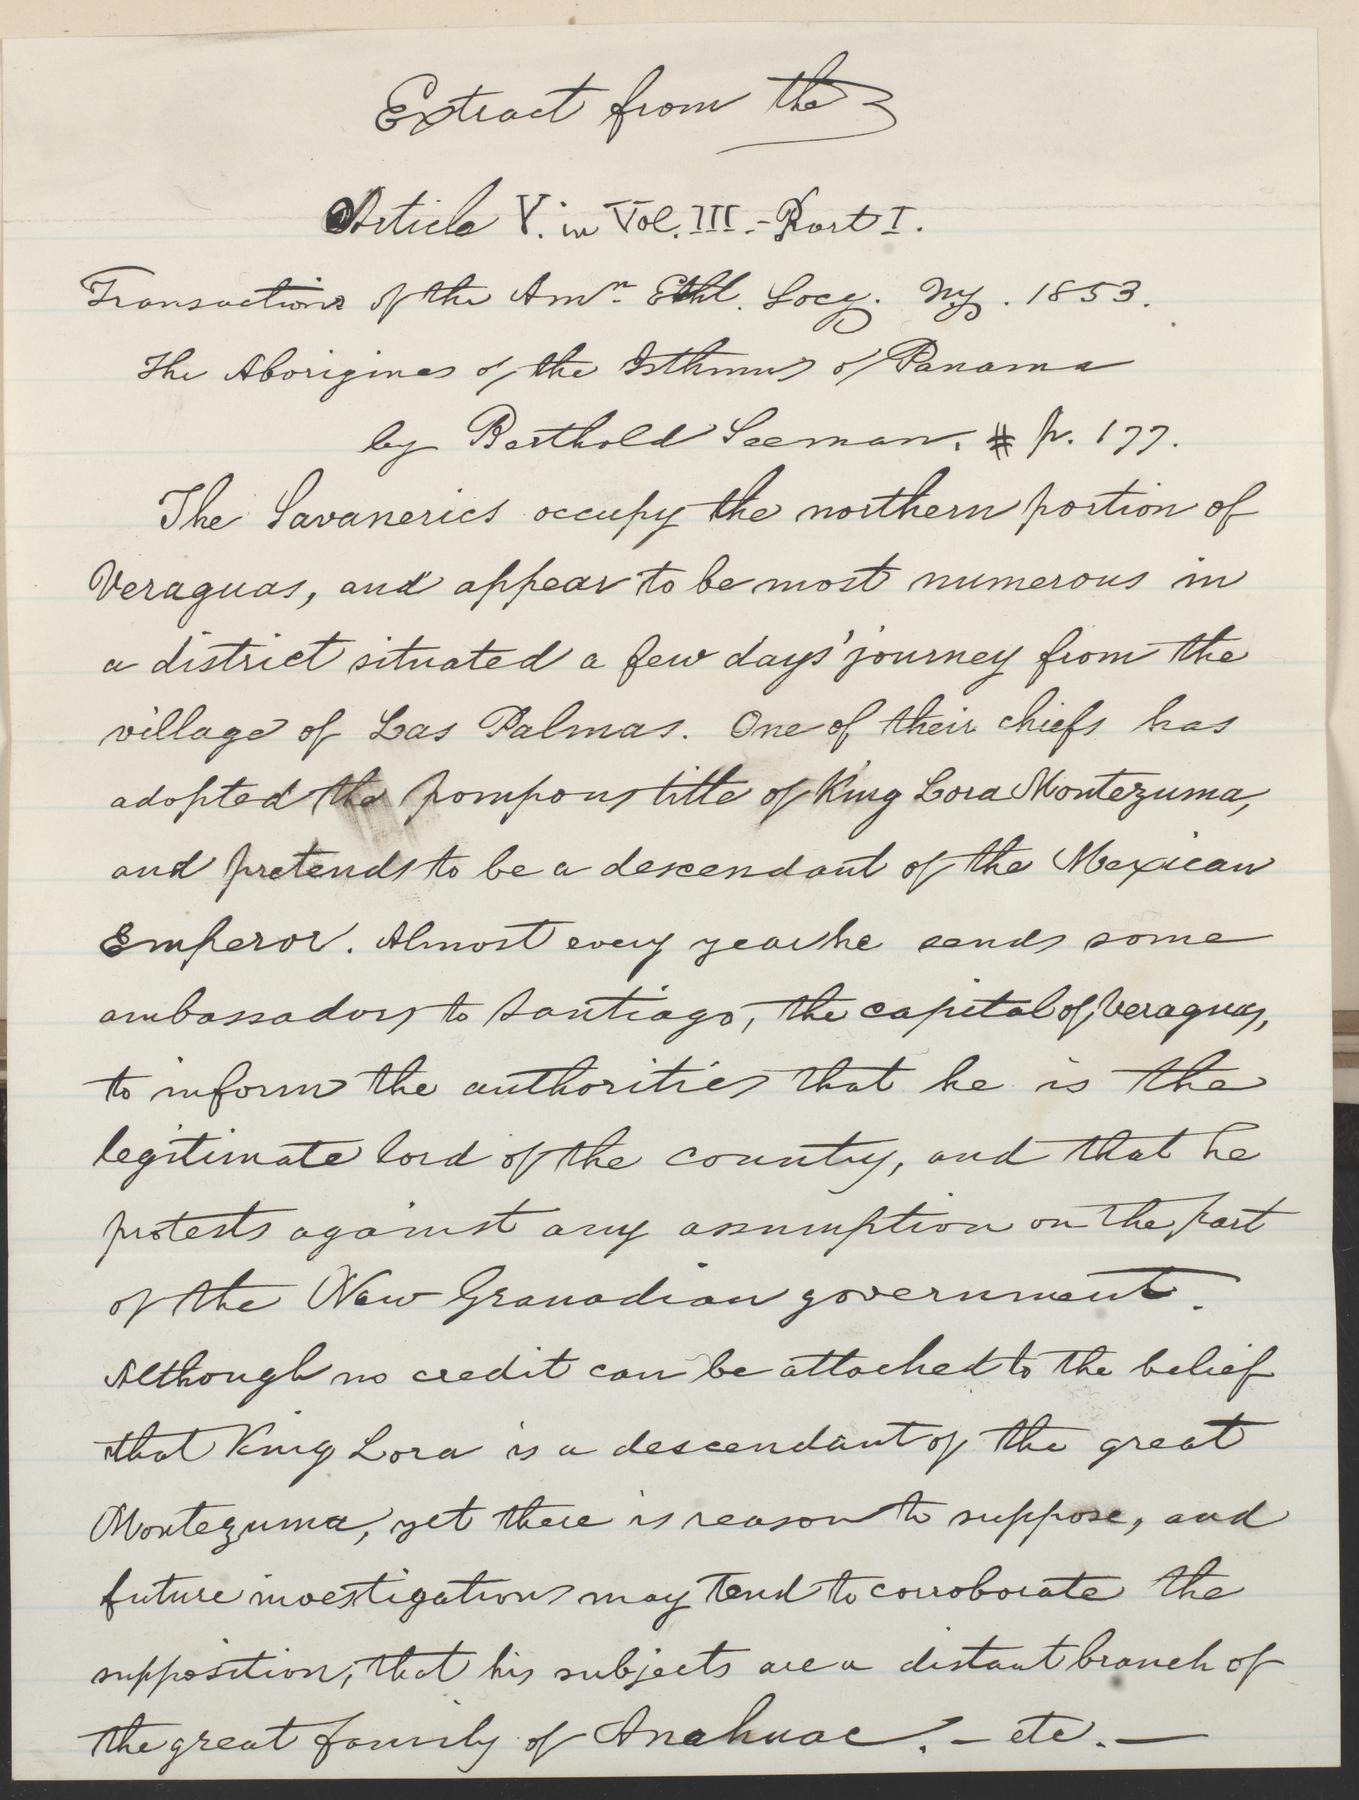 Extract from the
Article V. in Vol. III.- Part I.
Transactions of the Amn. Ethl. Socy. Ny. 1853.
The Aborigines of the Isthmus of Panama
by Berthold Seeman. # p. 177.
The Savanerics occupy the northern portion of
Veraguas, and appear to be most numerous in
a district situated a few days' journey from the
village of Las Palmas. One of their chiefs has
adopted the pompous title of King Lora Montezuma,
and pretends to be a descendant of the Mexican
Emperor. Almost every year he sends some
ambassadors to Santiago, the capital of Veraguas,
to inform the authorities that he is the
legitimate lord of the country, and that he
protests against any assumption on the part
of the New Granadian government.
Although no credit can be attached to the belief
that King Lora is a descendant of the great
Montezuma, yet there is reason to suppose, and
future investigations may tend to corroborate the
supposition, that his subjects are a distant branch of
the great family of Anahuac. - etc. -